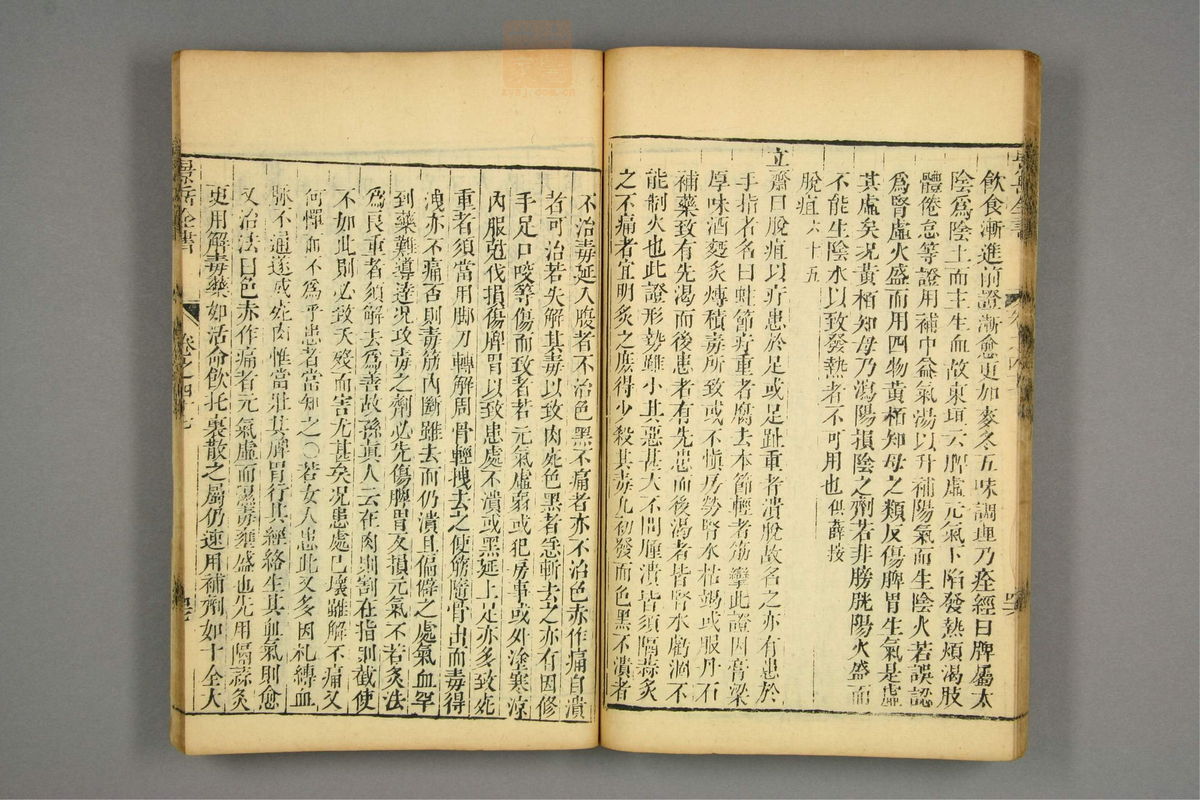 飲食漸進前證漸愈更加麥冬五味調理乃痊經曰脾屬太
陰為陰土而主生血故東垣云脾虛元氣下陷發熱煩渴肢
體倦怠等證用補中益氣湯以升補陽氣而生陰火若誤認
為腎虛火盛而用四物黃栢知母之類反傷脾胃生氣是虛
其虛矣況黃栢知母乃瀉陽損陰之劑若非膀胱陽火盛而
不能生陰水以致發熱者不可用也俱薛按
脫疽六十五
立齋曰脫疽以疔患於足或足趾重者潰脫故名之亦有患於
手指者名曰蛀節疔重者腐去本節輕者筋攣此證因膏粱
厚味酒麪炙煿積毒所致或不慎房勞腎水枯竭或服丹石
補藥致有先渴而後患者有先患而後渴者皆腎水虧涸不
能制火也此證形勢雖小其惡甚大不問腫潰皆須隔蒜炙
之不痛者宜明炙之庶得少殺其毒凡初發而色黑不潰者
不治毒延入腹者不治色黑不痛者亦不治色赤作痛自潰
者可治若失解其毒以致肉死色黑者急斬去之亦有因修
手足口咬等傷而致者若元氣虛弱或犯房事或外塗寒涼
內服剋伐損傷脾胃以致患處不潰或黑延上足亦多致死
重者須當用脚刀轉解周骨輕拽去之使筋隨骨出而毒得
洩亦不痛否則毒筋內斷雖去而仍潰且偏僻之處氣血罕
到藥難導達況攻毒之劑必先傷脾胃反損元氣不若炙法
為良重者須解去為善故孫真人云在肉則割在指則截使
不如此則必致夭殘而害尤甚矣況患處已壞雖解不痛又
何憚而不為乎患者當知之○若女人患此又多因札縛血
脉不通遂成死肉惟當壯其脾胃行其經絡生其血氣則愈
又治法曰色赤作痛者元氣虛而濕毒壅盛也先用隔蒜灸
更用解毒藥如活命飲托裏散之屬仍速用補劑如十全大
景岳全書
卷之四十七